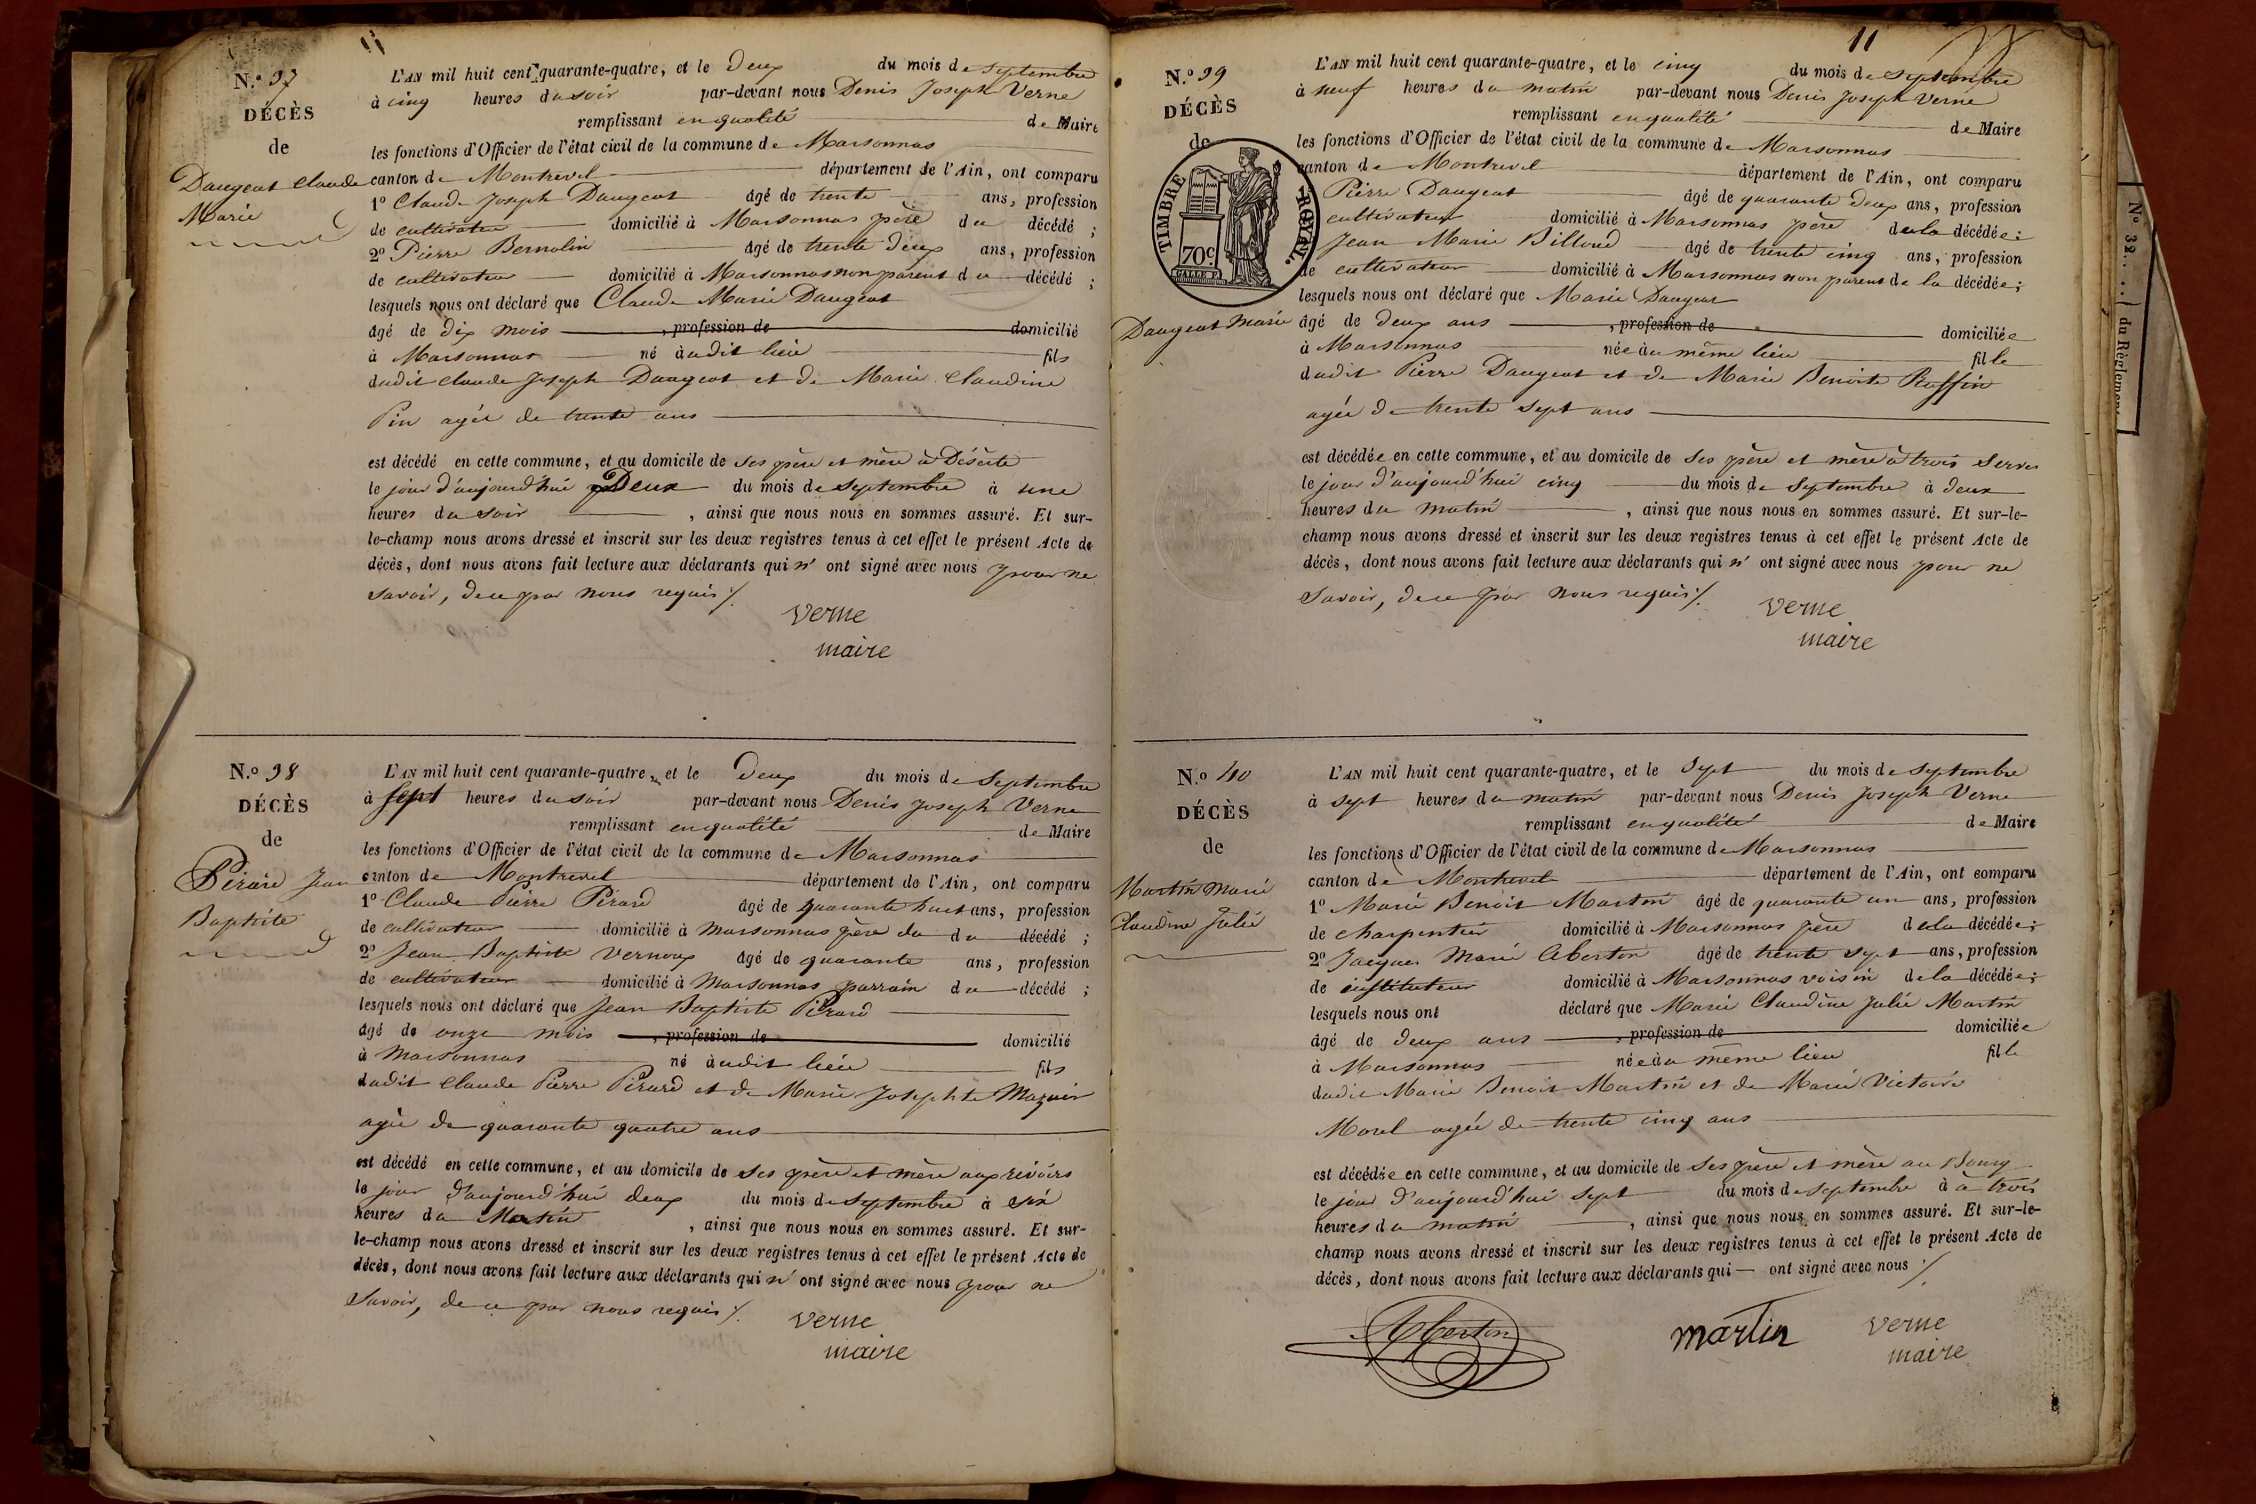 11
N.º 37
DÉCÈS
de
Daugeat Claude
Marie
L'AN mil huit cent quarante-quatre, et le deux du mois de septembre
à cinq heures du soir par-devant nous Denis Joseph Verne
remplissant en qualité de Maire
les fonctions d'Officier de l'état civil de la commune de Marsonnas
canton de Montrevel département de l'Ain, ont comparu
1º Claude Joseph Daugeat âgé de trente ans, profession
de cultivateur domicilié à Marsonnas père du décédé ;
2º Pierre Bernolin âgé de trente deux ans, profession
de cultivateur domicilié à Marsonnas non parent du décédé ;
lesquels nous ont déclaré que Claude Marie Daugeat
âgé de dix mois , profession de domicilié
à Marsonnas né audit lieu fils
dudit Claude Joseph Daugeat et de Marie Claudine
Pin agée de trente ans
est décédé en cette commune, et au domicile de ses père et mère à Déserte
le jour d'aujourd'hui Deux du mois de septembre à une
heures du soir , ainsi que nous nous en sommes assuré. Et sur-
le-champ nous avons dressé et inscrit sur les deux registres tenus à cet effet le présent Acte de
décès, dont nous avons fait lecture aux déclarants qui n' ont signé avec nous pour ne
savoir, de ce par nous requis ./.
Verne
maire
N.º 38
DÉCÈS
de
Pirard Jean
Baptiste
L'AN mil huit cent quarante-quatre, et le deux du mois de septembre
à sept heures du soir par-devant nous Denis Joseph Verne
remplissant en qualité de Maire
les fonctions d'Officier de l'état civil de la commune de Marsonnas
canton de Montrevel département de l'Ain, ont comparu
1º Claude Pierre Pirard âgé de quarante huit ans, profession
de cultivateur domicilié à Marsonnas père du du décédé ;
2º Jean Baptiste Vernoux âgé de quarante ans, profession
de cultivateur domicilié à Marsonnas parrain du décédé ;
lesquels nous ont déclaré que Jean Baptiste Pirard
âgé de onze mois , profession de domicilié
à Marsonnas né audit lieu fils
dudit Claude Pierre Pirard et de Marie Josephte Mazuir
agée de quarante quatre ans
est décédé en cette commune, et au domicile de ses père et mère aux revoirs
le jour d'aujourd'hui deux du mois de septembre à six
heures du Matin , ainsi que nous nous en sommes assuré. Et sur-
le-champ nous avons dressé et inscrit sur les deux registres tenus à cet effet le présent Acte de
décès, dont nous avons fait lecture aux déclarants qui n' ont signé avec nous pour ne
savoir, de ce par nous requis ./.
Verne
maire
11
N.º 39
DÉCÈS
de
TIMBRE ROYAL.
70c
Daugeat Marie
L'AN mil huit cent quarante-quatre, et le cinq du mois de septembre
à neuf heures du matin par-devant nous Denis Joseph Verne
remplissant en qualité de Maire
les fonctions d'Officier de l'état civil de la commune de Marsonnas
canton de Montrevel département de l'Ain, ont comparu
Pierre Daugeat âgé de quarante deux ans, profession
cultivateur domicilié à Marsonnas père de la décédée ;
Jean Marie Billoud âgé de trente cinq ans, profession
de cultivateur domicilié à Marsonnas non parent de la décédée ;
lesquels nous ont déclaré que Marie Daugeat
âgé de deux ans , profession de domiciliée
à Marsonnas née au même lieu fille
dudit Pierre Daugeat et de Marie Benoite Ruffin
agée de trente sept ans
est décédée en cette commune, et au domicile de ses père et mère à trois Serves
le jour d'aujourd'hui cinq du mois de septembre à deux
heures du matin , ainsi que nous nous en sommes assuré. Et sur-le-
champ nous avons dressé et inscrit sur les deux registres tenus à cet effet le présent Acte de
décès, dont nous avons fait lecture aux déclarants qui n' ont signé avec nous pour ne
savoir, de ce par nous requis ./.
Verne
maire
N.º 40
DÉCÈS
de
Martin Marie
Claudine Julie
L'AN mil huit cent quarante-quatre, et le sept du mois de septembre
à sept heures du matin par-devant nous Denis Joseph Verne
remplissant en qualité de Maire
les fonctions d'Officier de l'état civil de la commune de Marsonnas
canton de Montrevel département de l'Ain, ont comparu
1º Marie Benoit Martin âgé de quarante un ans, profession
de charpentier domicilié à Marsonnas père de la décédée ;
2º Jacques Marie Aberton âgé de trente sept ans, profession
de instituteur domicilié à Marsonnas voisin de la décédée ;
lesquels nous ont déclaré que Marie Claudine Julie Martin
âgé de deux ans , profession de domiciliée
à Marsonnas née au même lieu fille
dudit Marie Benoit Martin et de Marie Victoire
Morel agée de trente cinq ans
est décédée en cette commune, et au domicile de ses père et mère au Bourg
le jour d'aujourd'hui sept du mois de septembre à à trois
heures du matin , ainsi que nous nous en sommes assuré. Et sur-le-
champ nous avons dressé et inscrit sur les deux registres tenus à cet effet le présent Acte de
décès, dont nous avons fait lecture aux déclarants qui — ont signé avec nous ./.
Aberton
Martin
Verne
maire
N.º 32
du Règlement